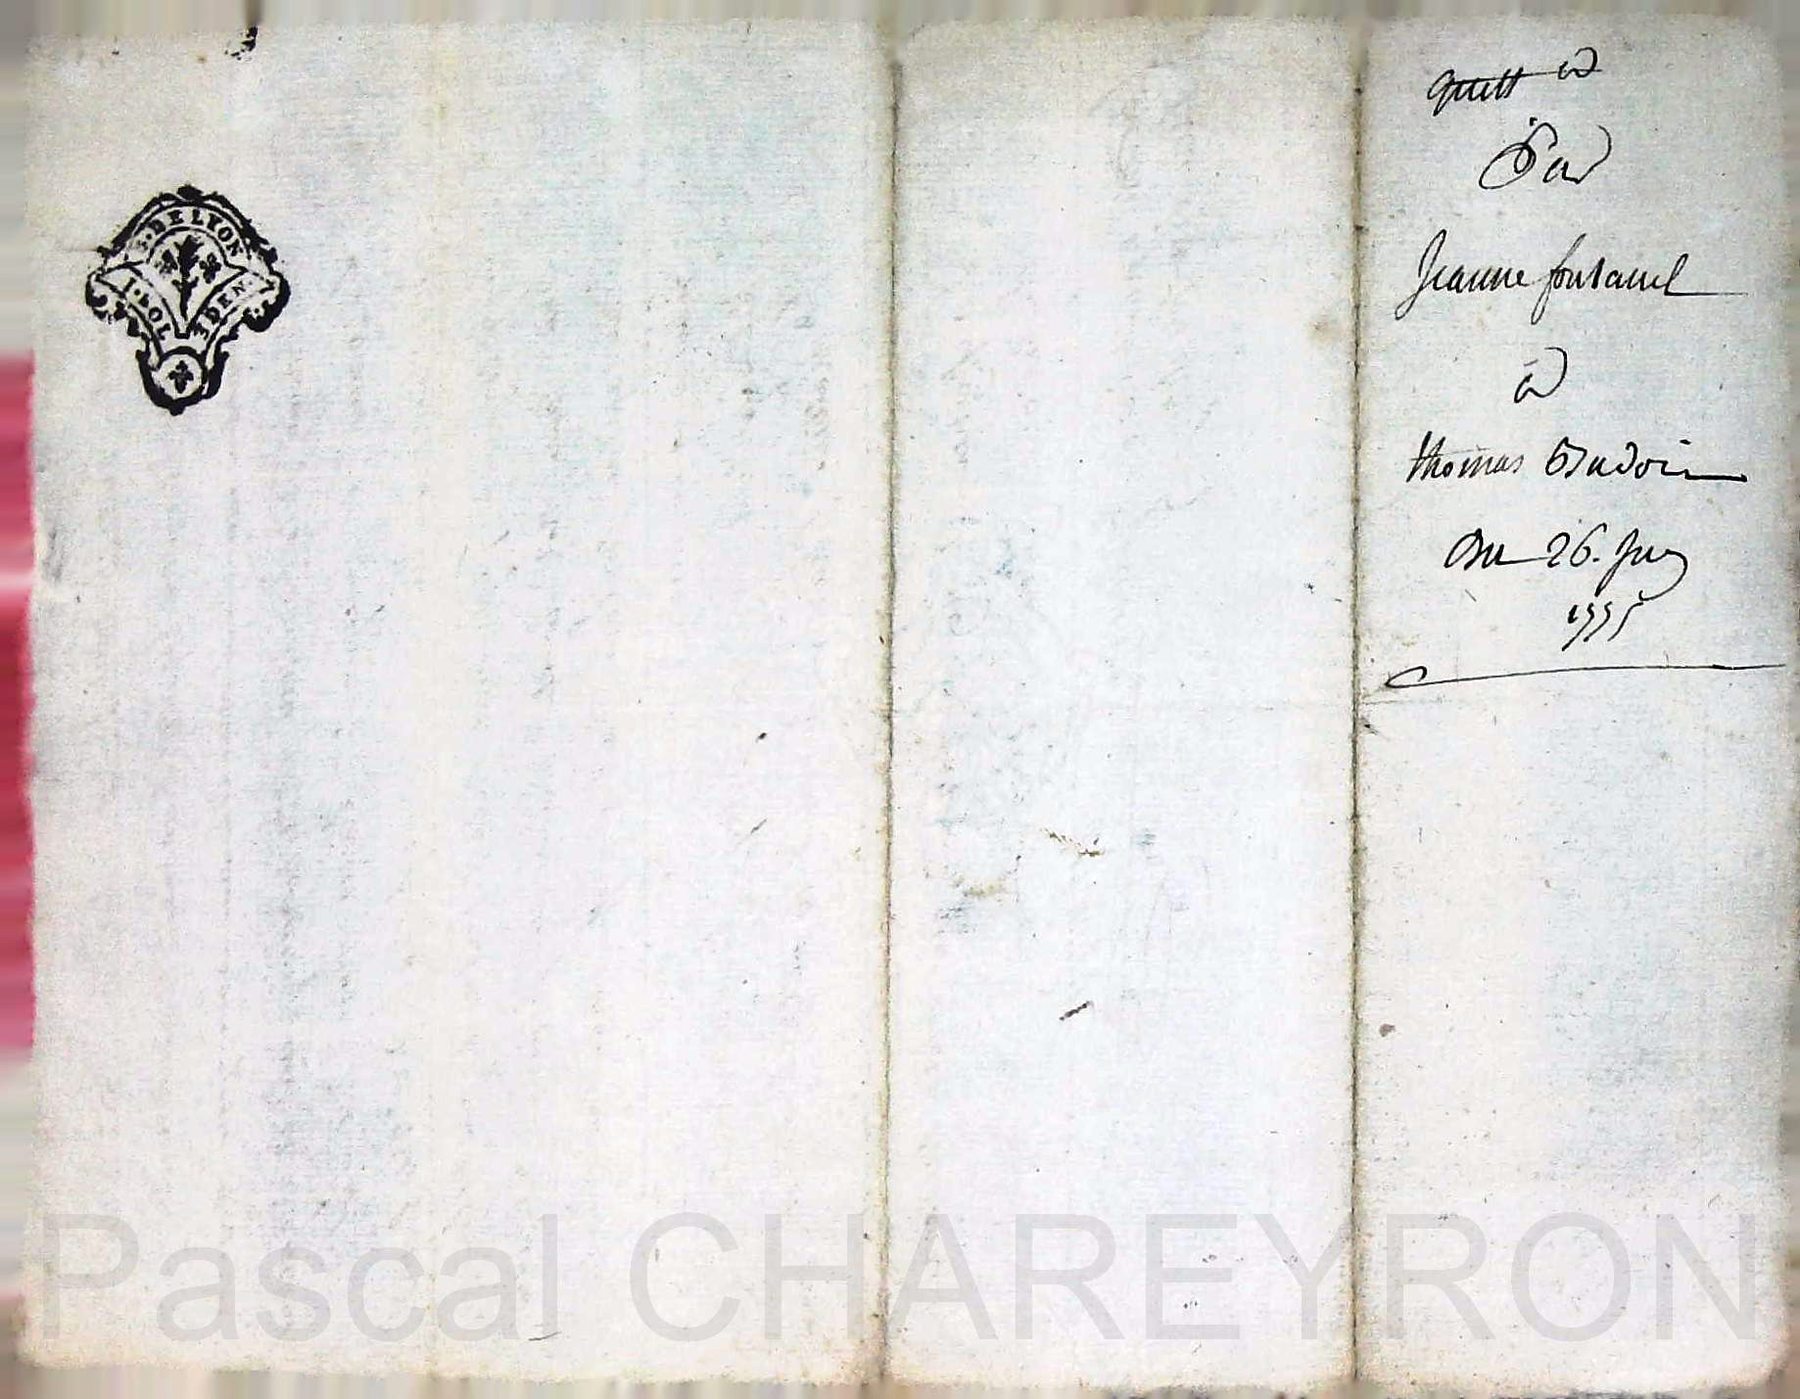 G. DE LYON
1. SOL 3 DEN.
quitt ce
Par
Jeanne fontanel
à
thomas Baudoin
Du 26. Juin
1775
Pascal CHAREYRON